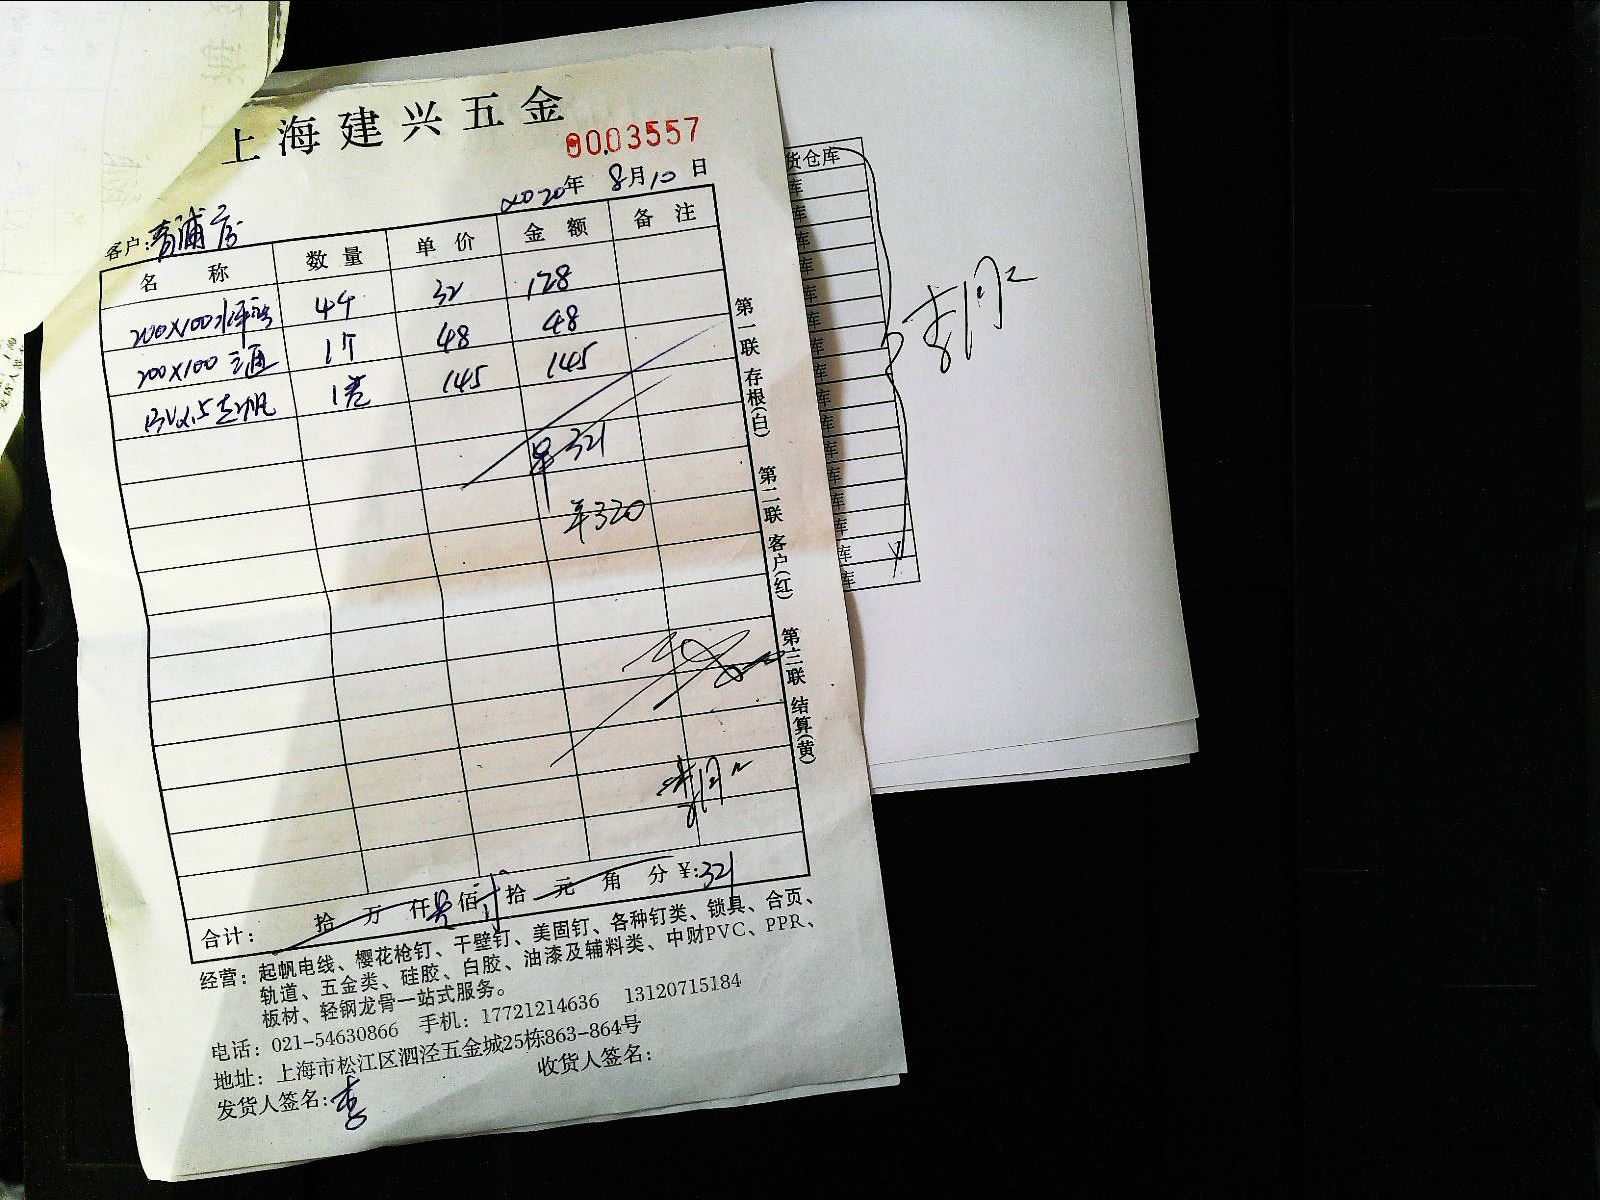 上海建兴五金
0003557
2020年 8月10日
客户:青浦店
名 称 数量 单价 金额 备注
200X100 44 32 128
200X100 三通 1个 48 48
BV2.5起帆 1卷 145 145
¥321
¥320
合计: 拾 万 仟 佰 拾 元 角 分 ¥:321
经营:起帆电线、樱花枪钉、干壁钉、美固钉、各种钉类、锁具、合页、
轨道、五金类、硅胶、白胶、油漆及辅料类、中财PVC、PPR、
板材、轻钢龙骨一站式服务。
电话:021-54630866 手机:17721214636 13120715184
地址:上海市松江区泗泾五金城25栋863-864号
发货人签名:李 收货人签名:
第一联 存根(白) 第二联 客户(红) 第三联 结算(黄)
货仓库
库
库
库
库
库
库
库
库
库
库
库
库
库
库
库
库